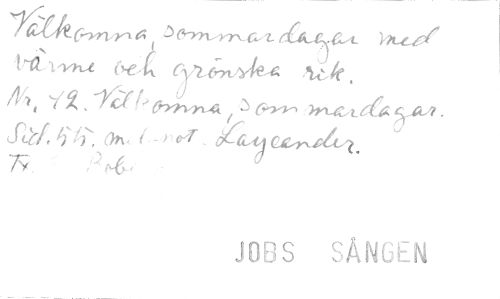 Välkomna, sommardagar med
värme och grönska rik.
Nr. 42. Välkomna, sommardagar.
Sid. 55. mel. not. Laycander.
JOBS SÅNGEN